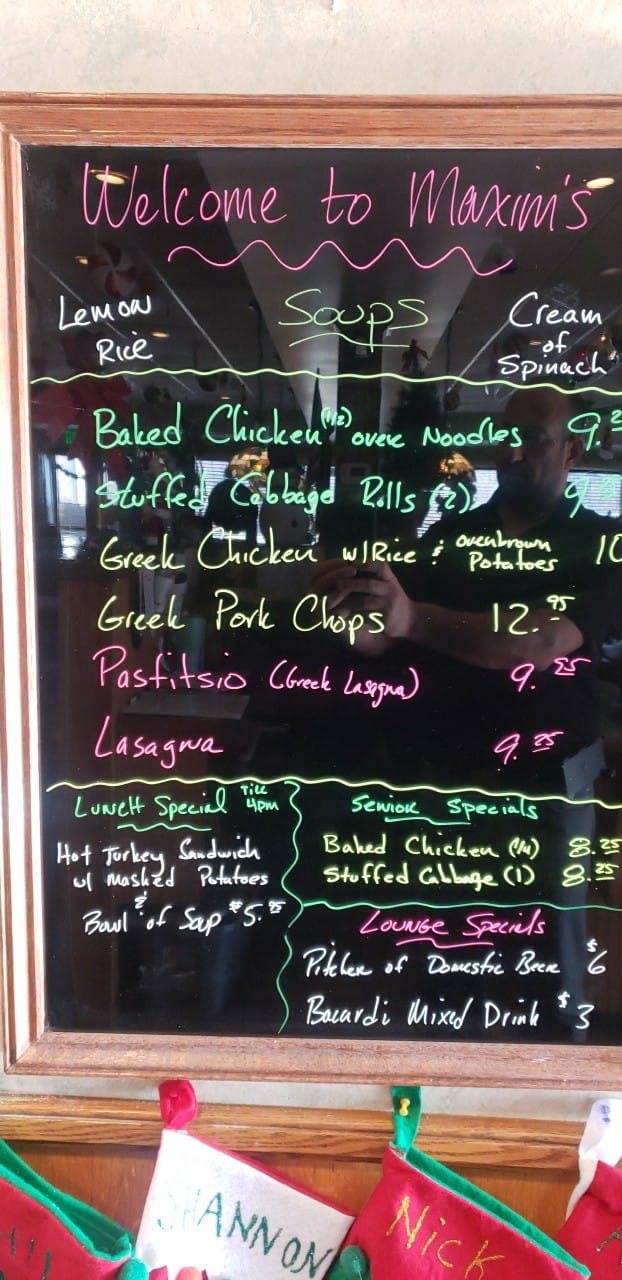 Welcome to Maxim's
Soups
Lemon
Rice
Cream
of
Spinach
Baked Chicken (1/2) over Noodles 9.
Stuffed Cabbage Rolls (2) 9.
Greek Chicken w/Rice & ovenbrown Potatoes 10
Greek Pork Chops 12.95
Pasfitsio (Greek Lasagna) 9.25
Lasagna 9.25
Lunch Special Till 4pm
Hot Turkey Sandwich
w/ Mashed Potatoes
&
Bowl of Soup $5.95
Senior Specials
Baked Chicken (1/4) 8.25
Stuffed Cabbage (1) 8.25
Lounge Specials
Pitcher of Domestic Beer $6
Bacardi Mixed Drink $3
SHANNON
Nick